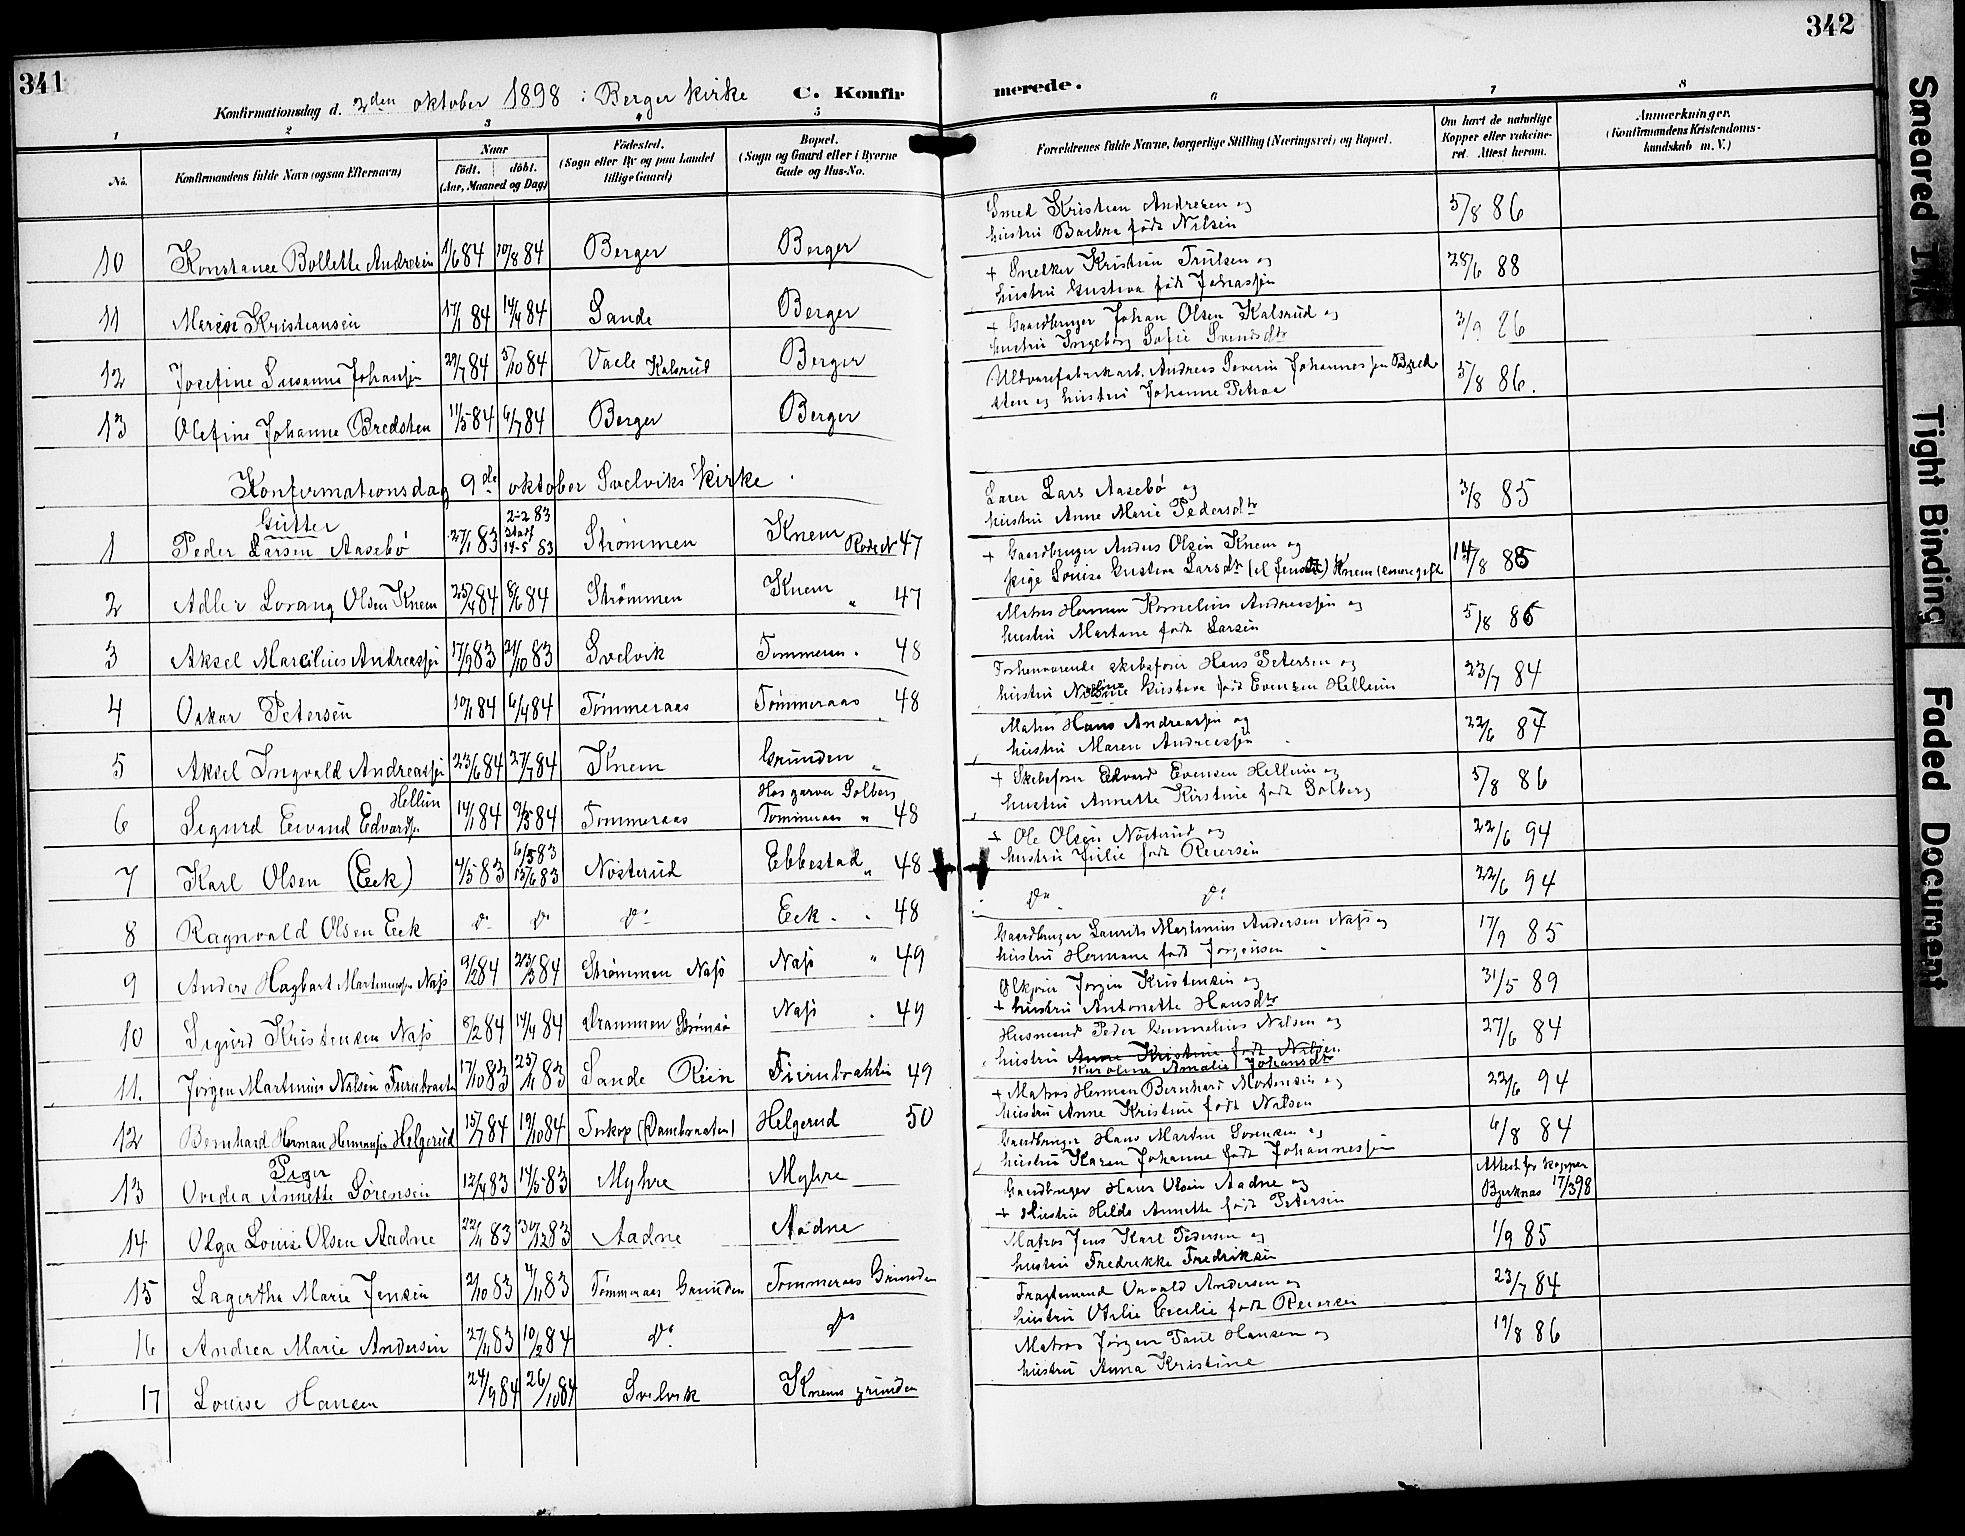 341
Konfirmationsdag d. 2den oktober 1898 i Berger kirke
C. Konfir
1
2
3
4
5
No.
Konfirmandens fulde Navn (ogsaa Efternavn)
Naar
födt. döbt.
(Aar, Maaned og Dag)
Födested.
(Sogn eller By og paa Landet
tillige Gaard)
Bopæl.
(Sogn og Gaard eller i Byerne
Gade og Hus-No.
10 Konstance Bollette Andresen 1/6 84 10/8 84 Berger Berger
11 Marie Kristiansen 17/1 84 14/4 84 Sande Berger
12 Josefine Susanne Johansen 29/7 84 5/10 84 Vaele Kalsrud Berger
13 Olefine Johanne Bredsten 11/5 84 6/7 84 Berger Berger
Konfirmationsdag 9de oktober Svelviks kirke
Gutter
2-2 83
stadf
1 Peder Larsen Aasebö 27/1 83 14-5 83 Strømmen Knem Rode N 47
2 Adler Lorang Olsen Knem 25/4 84 8/6 84 Strømmen Knem " 47
3 Aksel Marcilius Andreassen 17/9 83 21/10 83 Svelvik Tømmeraas 48
4 Oskar Petersen 10/1 84 6/4 84 Tømmeraas Tømmeraas 48
5 Aksel Ingvald Andreassen 23/6 84 27/7 84 Knem Grunden "
Hellum
Hos garver Solberg
6 Sigurd Eivind Edvardsen 14/1 84 9/3 84 Tømmeraas Tømmeraas " 48
6/5 83
7 Karl Olsen (Eek) 4/5 83 13/6 83 Nøsterud Ebbestad " 48
8 Ragnvald Olsen Eek do do do Eek 48
9 Anders Hagbart Martinusen Næss 9/2 84 23/3 84 Strømmen Næss Næss " 49
10 Sigurd Kristensen Næss 8/2 84 14/4 84 Drammen Strømsø Næss 49
11. Jørgen Martinius Nilsen Furubrakta 17/10 83 25/11 83 Sande Rein Furubrakta 49
12 Bernhard Herman Hermansen Helgerud 15/7 84 19/10 84 Forkop (Dambraaten) Helgerud 50
Piger
13 Ovedia Annette Sørensen 12/4 83 14/5 83 Myhre Myhre
14 Olga Louise Olsen Aadne 22/11 83 30/12 83 Aadne Aadne
15 Lagertha Marie Jensen 2/10 83 4/11 83 Tømmeraas Grunden Tømmeraas Grunden
16 Andrea Marie Andersen 27/11 83 10/2 84 do do
17 Louise Hansen 24/9 84 26/10 84 Svelvik Knems grunden
342
merede.
6
7
8
Forældrenes fulde Navne, borgerlige Stilling (Næringsvei) og Bopæl.
Om havt de naturlige
Kopper eller vakcine-
ret. Attest herom.
Anmærkninger.
(Konfirmandens Kristendoms-
kundskab m. V.)
Smed Kristian Andresen og
hustru Barbra født Nilsen 5/8 86
+ Snekker Kristian Trulsen og
hustru Gustava født Johansen 25/6 88
+ Gaardbruger Johan Olsen Kalsrud og
hustru Ingeborg Sofie Svendsdtr 3/9 86
Uldvarefabrikarb. Andreas Severin Johannessen Bred-
sten og hustru Johanne Petrea 5/8 86.
Lærer Lars Aasebö og
hustru Anne Marie Pedersdtr 3/8 85
+ Gaardbruger Anders Olsen Knem og
pige Louise Gustava Larsdtr Knem 14/8 85
Matros Herman Kornelius Andreassen og
hustru Martane født Larsen 5/8 86
Forhenværende skibsfører Hans Petersen og
hustru Gustava født Evensen Hellum 23/7 84
Matros Hans Andreassen og
hustru Maren Andreassen 22/6 87
+ Skibsfører Edvard Evensen Hellum og
hustru Annette Kirstine født Solberg 5/8 86
+ Ole Olsen Nøsterud og
hustru Julie født Reiersen 22/6 94
do do 22/6 94
Gaardbruger Laurits Martinius Andersen Næss og
hustru Hermane født Jørgensen 17/9 85
Ølkjører Jørgen Kristensen og
+ hustru Antonette Hansdtr 31/5 89
Husmand Peder Gunnelius Nilsen og
hustru Anne Kristine født Nilsen 27/6 84
Karoline Amalie Johansdtr
+ Matros Herman Bernhard Mortensen og
hustru Anne Kristine født Nilsen 22/6 94
Gaardbruger Hans Martin Sorensen og
hustru Karen Johanne født Johannessen 6/8 84
Gaardbruger Hans Olsen Aadne og
+ Hustru Helde Annette født Petersen
Attest for kopper
Bjerknæs 17/3 98
Matros Jens Karl Pedersen og
hustru Fredrikke Fredriksen 1/9 85
Fragtemand Osvald Andersen og
hustru Otilie Cecilie født Reiersen 23/7 84
Matros Jørgen Paul Hansen og
hustru Anna Kristine 19/8 86
Smeared Ink
Tight Binding
Faded Document